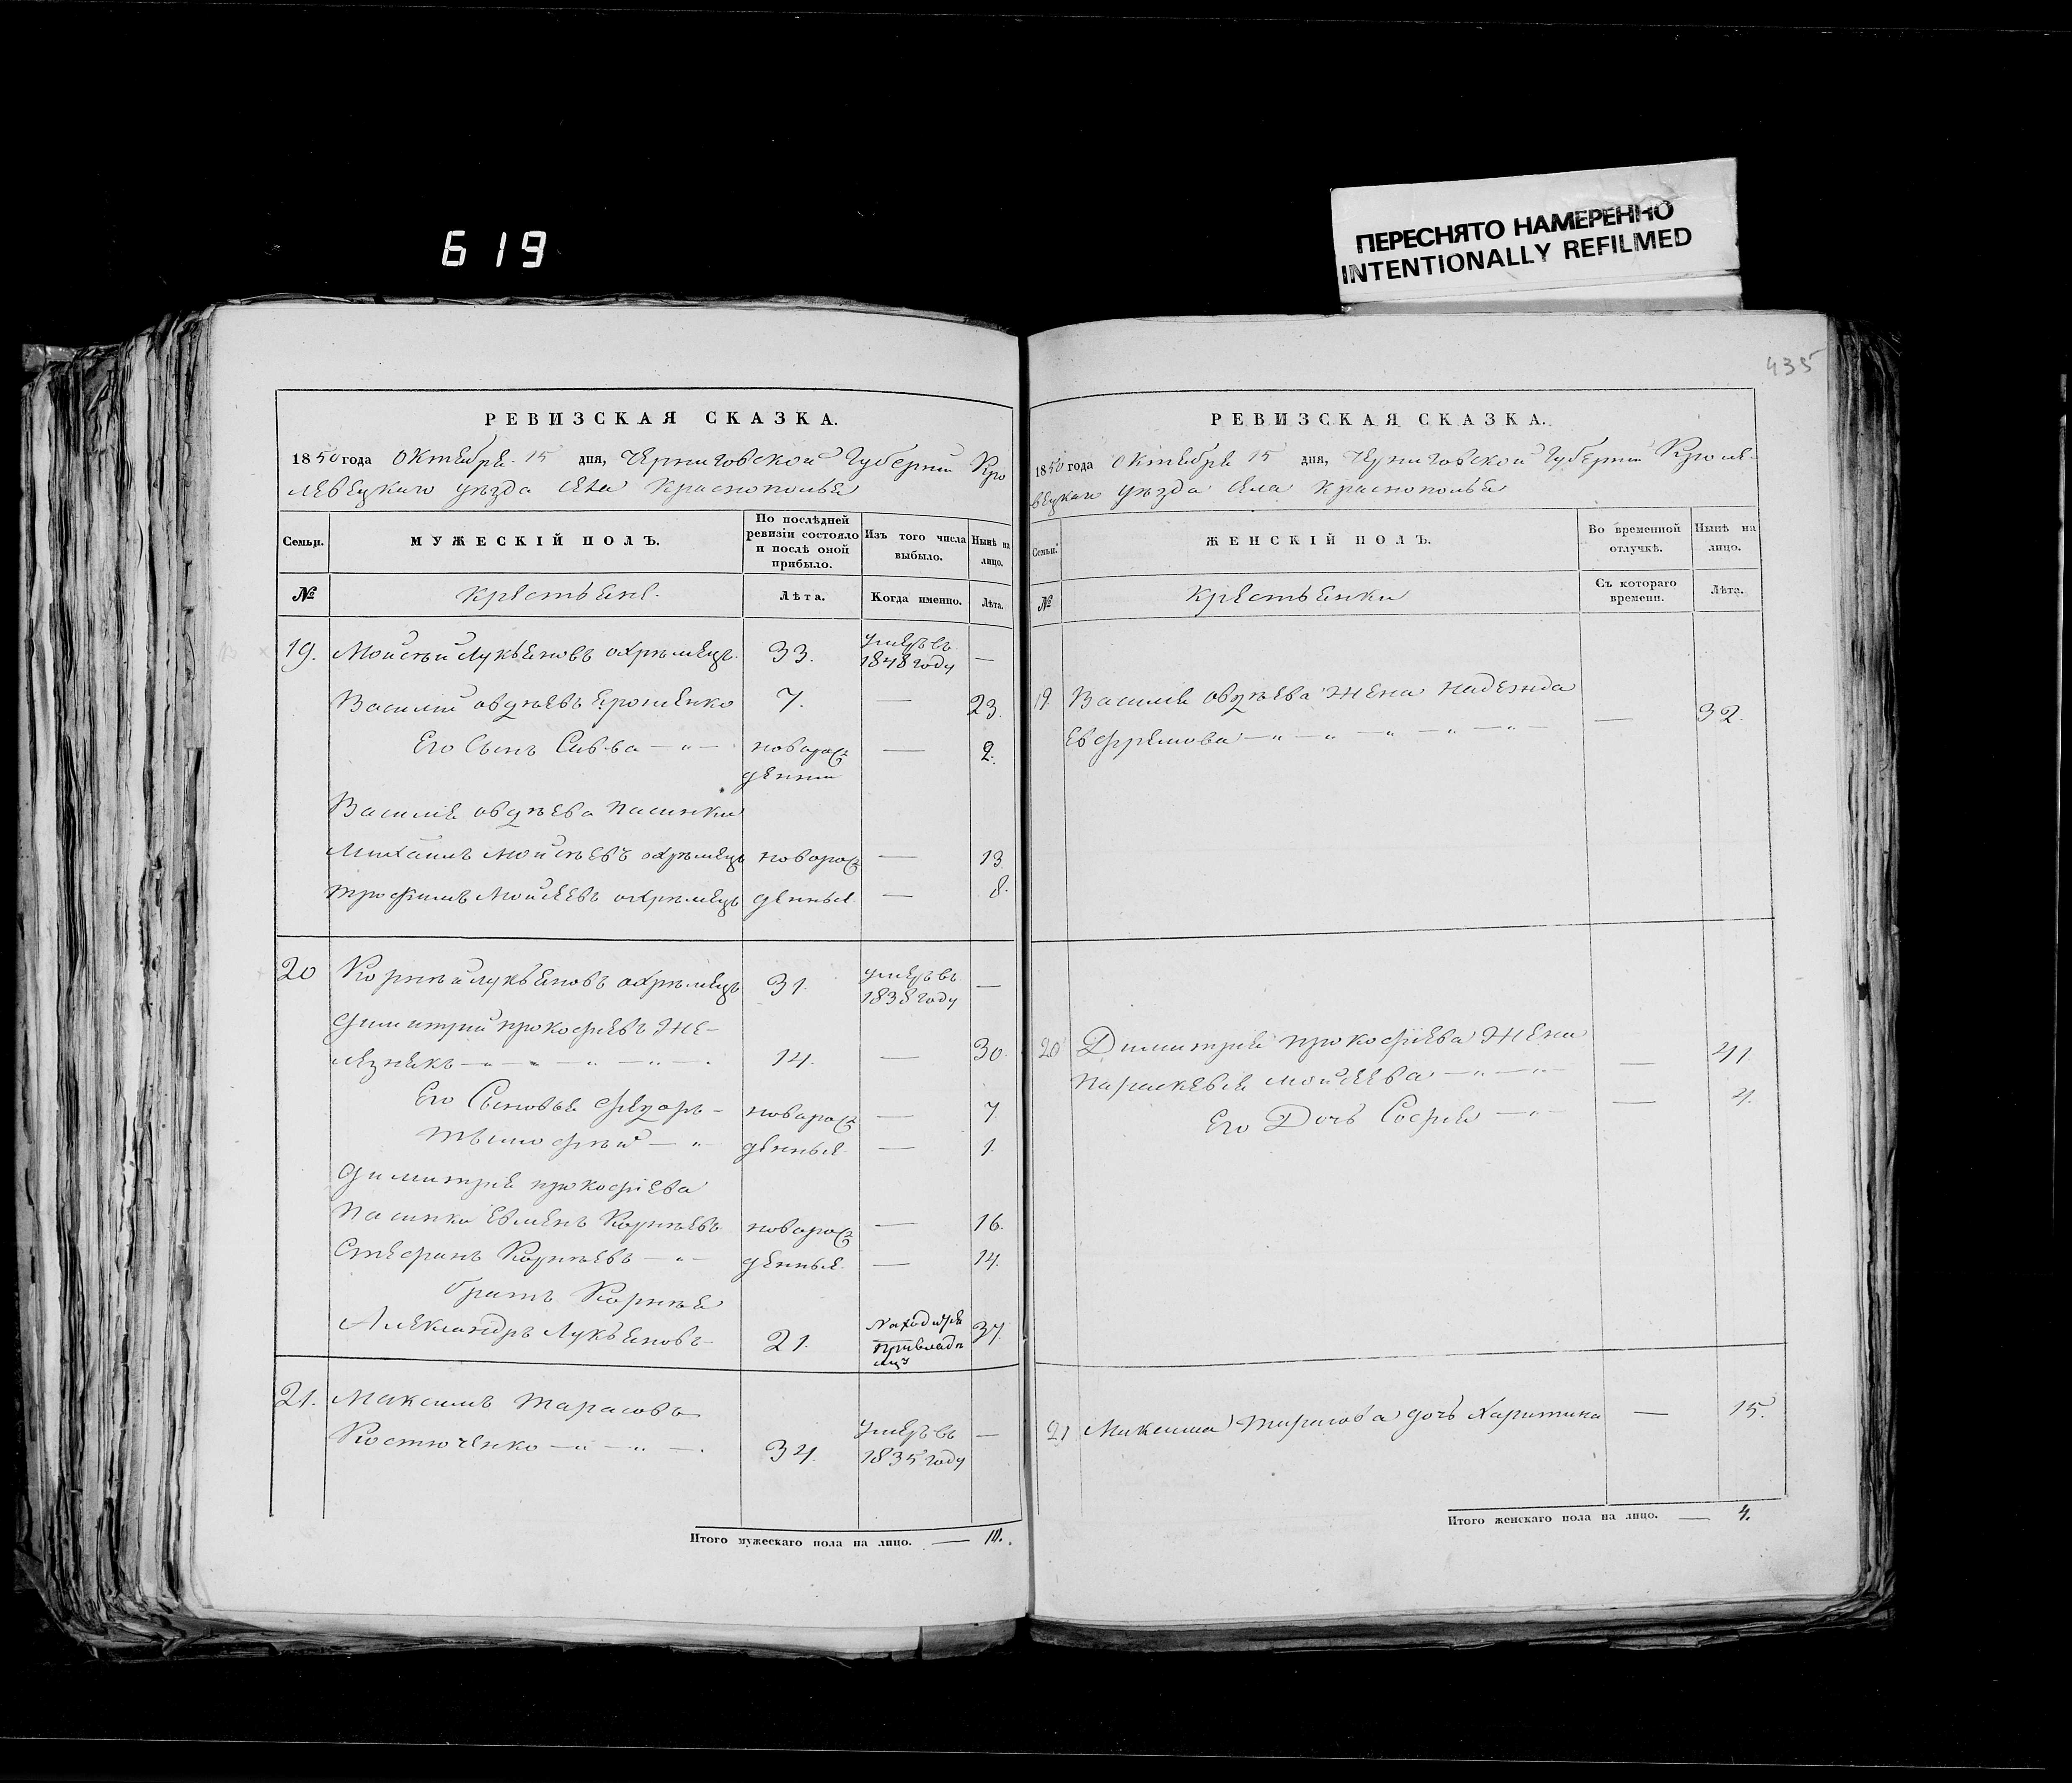 619
ПЕРЕСНЯТО НАМЕРЕННО
INTENTIONALLY REFILMED
435
РЕВИЗСКАЯ СКАЗКА.
1850 года Октября 15 дня, Черниговской Губернии Кро
левецкаго уезда Села Краснополья
Семьи. МУЖЕСКІЙ ПОЛЪ. По послѣдней ревизіи состояло и послѣ оной прибыло. Изъ того числа выбыло. Нынѣ на лицо.
№ Крестьяне. Лѣта. Когда именно. Лѣта.
19. Моисей Лукьяновъ Охрѣмецъ 33. умеръ въ 1848 году —
Василій Овдѣевъ Ерошенко 7. — 23.
Его Сынъ Савва — " — новорож — 2.
денный
Василія Овдѣева пасынки
Михаилъ Мойсѣевъ Охрѣмецъ новорож — 13.
Трофимъ Мойсеевъ Охрѣмецъ денные — 8.
20 Корнѣй Лукьяновъ Охрѣмецъ 31. умеръ въ 1838 году —
Димитрій Прокофіевъ Же-
лезнякъ — " — " — " — 14. — 30.
Его Сыновья Федоръ — новорож — 7.
Тымофѣй — " денные — 1.
Димитрія Прокофіева
пасынки Евменъ Корнѣевъ новорож — 16.
Стефанъ Корнѣевъ — " — денные — 14.
Братъ Корнѣя
Александръ Лукьяновъ 21. Находится при 37.
21. Максимъ Тарасовъ
Костюченко — " — " — 34. умеръ въ 1835 году —
Итого мужескаго пола на лицо. — 10.
РЕВИЗСКАЯ СКАЗКА.
1850 года Октября 15 дня, Черниговской Губерніи Кроле-
вецкаго уезда Села Краснополья
Семьи. ЖЕНСКІЙ ПОЛЪ. Во временной отлучкѣ. Нынѣ на лицо.
№ Крестьянки Съ котораго времени. Лѣта.
19 Василія Овдѣева жена Надежда
Евфремова — " — " — " — " — " — — 32.
20 Димитрія Прокофіева Жена
Параскевія Мойсеева — " — " — — 41
Его Дочь Софія — " — — 4.
21 Максима Тарасова дочь Харитина — 15.
Итого женскаго пола на лицо. — 4.